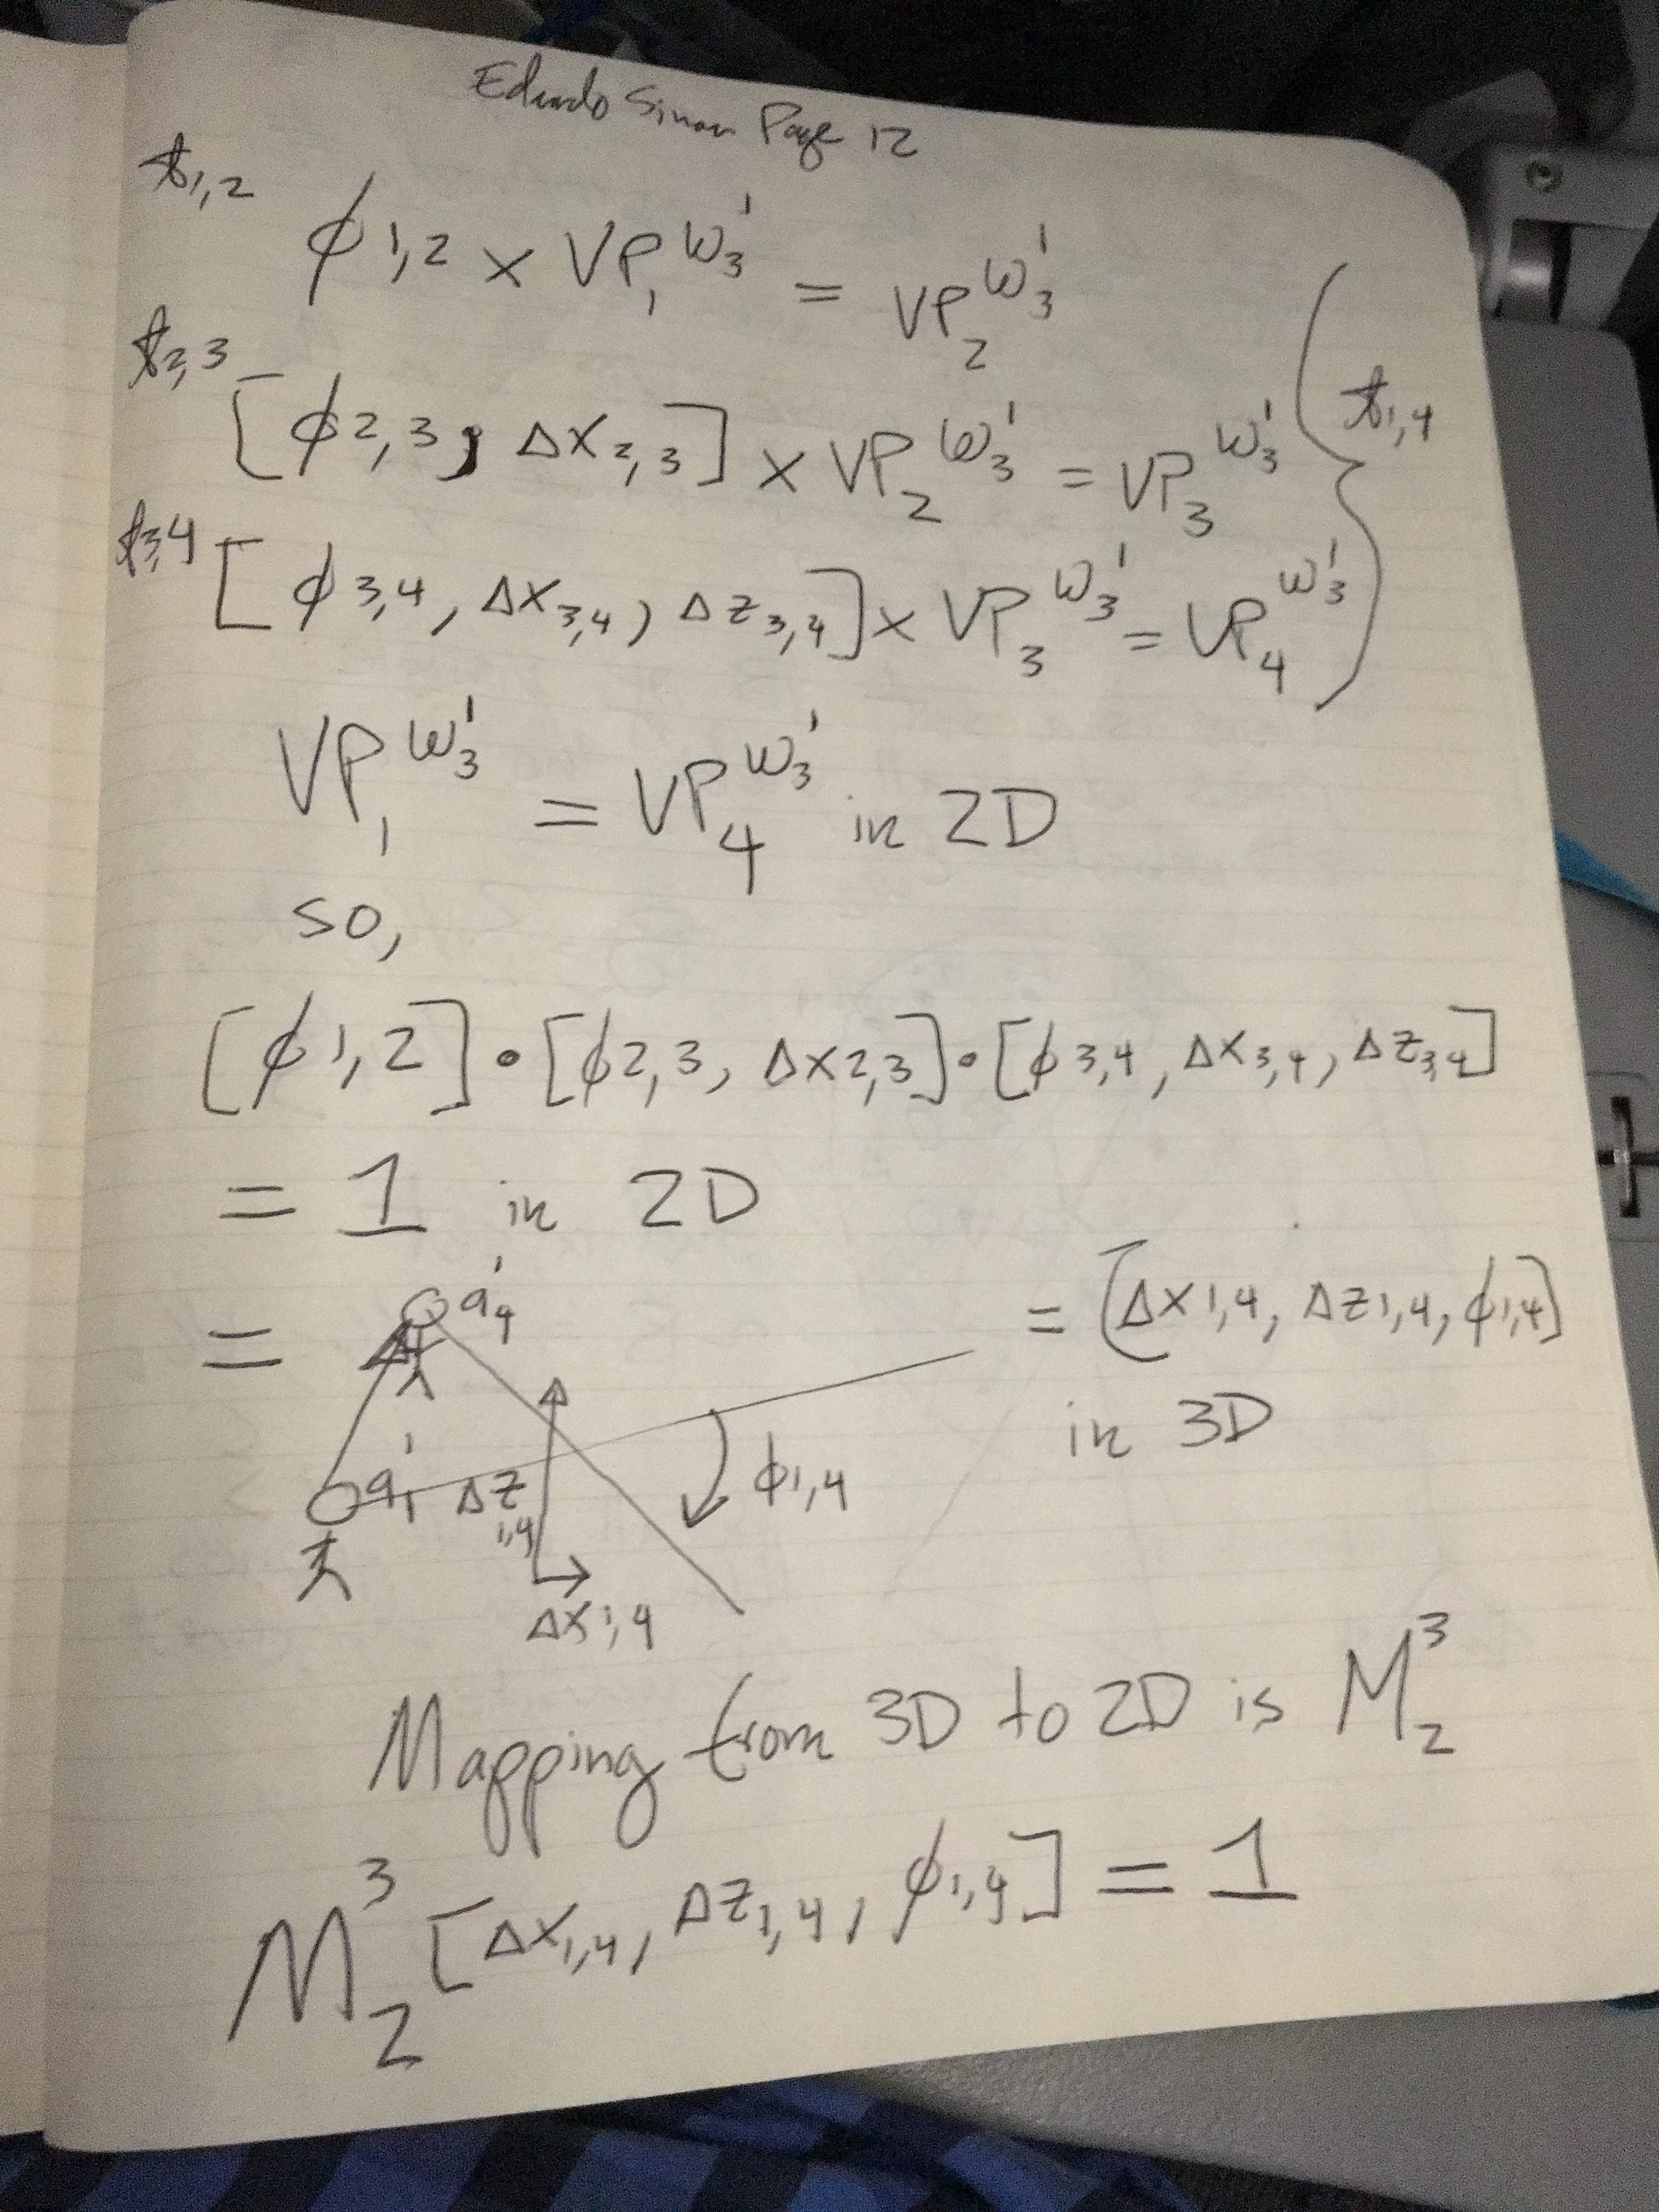 Eduardo Simon Page 12
t1,2
ϕ1,2 × VP₁^W₃' = VP₂^W₃'
t2,3
[ϕ2,3, Δx2,3] × VP₂^W₃' = VP₃^W₃'
t1,4
t3,4
[ϕ3,4, Δx3,4, Δz3,4] × VP₃^W₃' = VP₄^W₃'
VP₁^W₃' = VP₄^W₃' in 2D
so,
[ϕ1,2] • [ϕ2,3, Δx2,3] • [ϕ3,4, Δx3,4, Δz3,4]
= 1 in 2D
= a₄' = [Δx1,4, Δz1,4, ϕ1,4]
in 3D
a₁' Δz1,4 ϕ1,4
Δx1,4
Mapping from 3D to 2D is M₂³
M₂³ [Δx1,4, Δz1,4, ϕ1,4] = 1